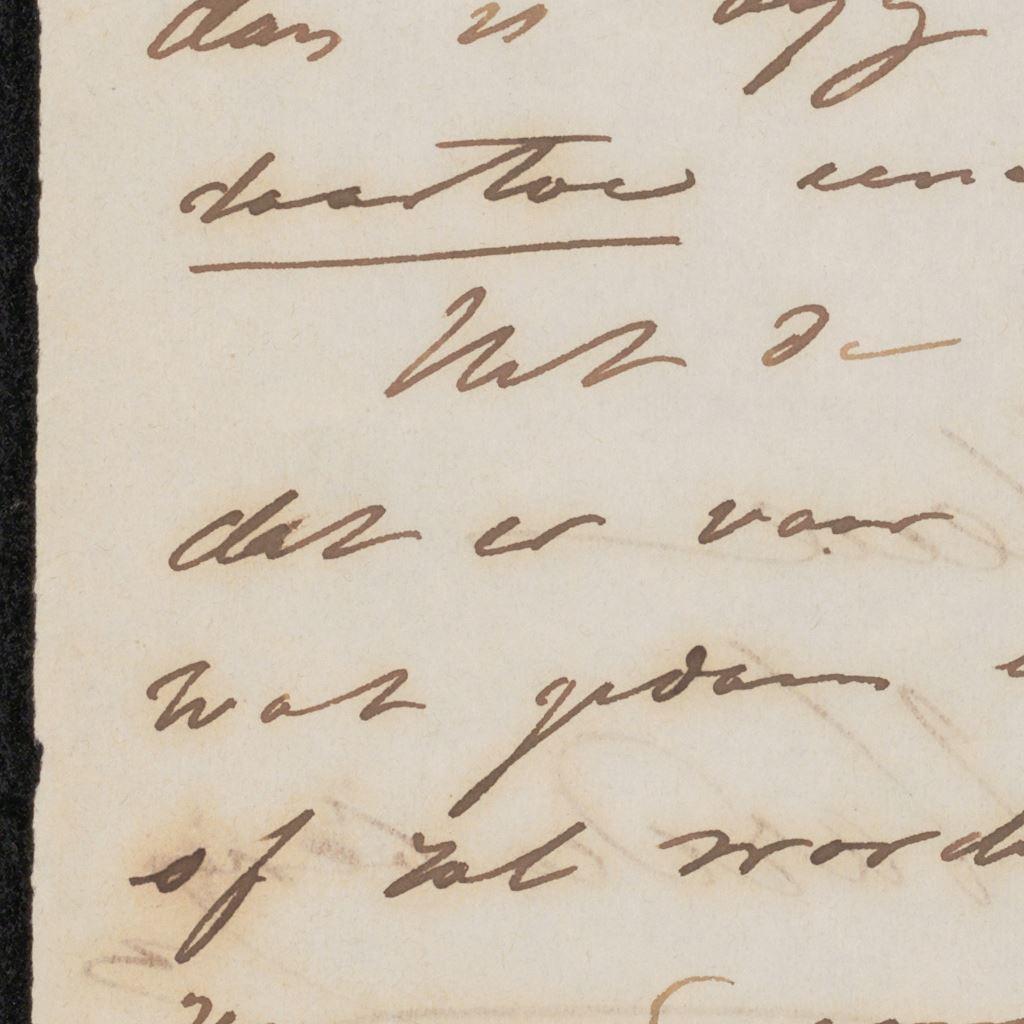 dan is
daartoe eene
Met de
dat er voor
wat gedaan
of zal worde